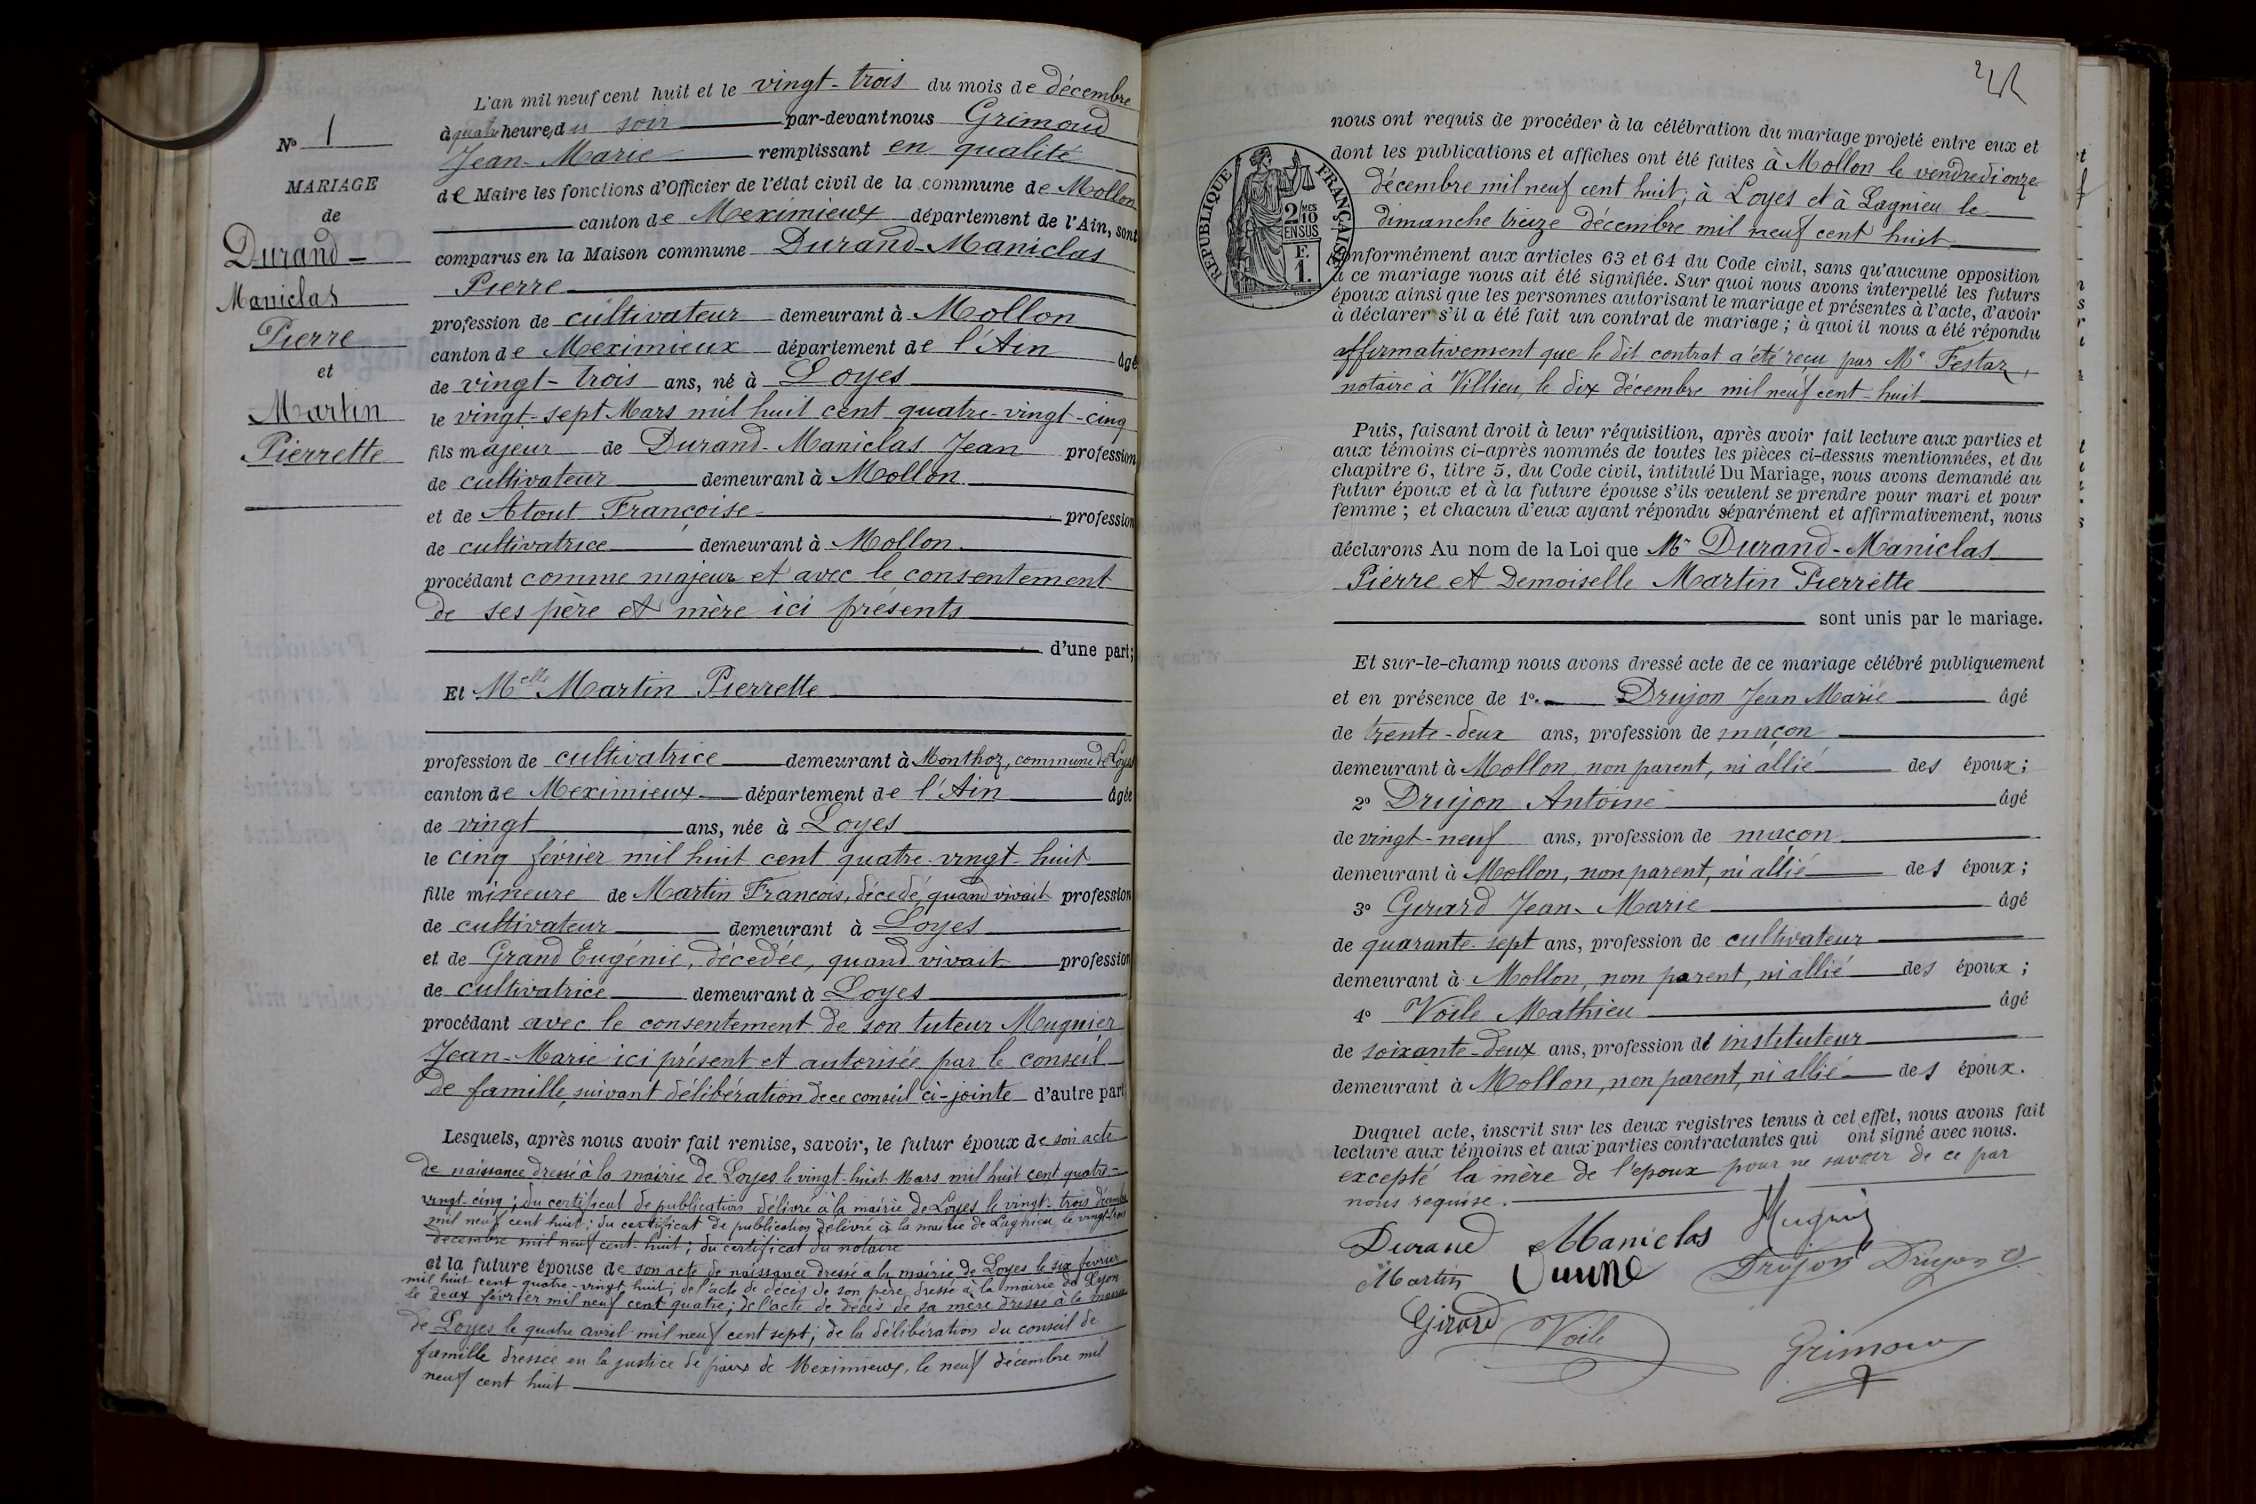 L'an mil neuf cent huit et le vingt-trois du mois de décembre
à quatre heures du soir par-devant nous Grimoud
Jean-Marie remplissant en qualité
de Maire les fonctions d'Officier de l'état civil de la commune de Mollon
canton de Meximieux département de l'Ain, sont
comparus en la Maison commune Durand-Maniclas
Pierre
profession de cultivateur demeurant à Mollon
canton de Meximieux département de l'Ain âgé
de vingt-trois ans, né à Loyes
le vingt-sept Mars mil huit cent quatre-vingt-cinq
fils majeur de Durand-Maniclas Jean profession
de cultivateur demeurant à Mollon
et de Atout Françoise profession
de cultivatrice demeurant à Mollon
procédant comme majeur et avec le consentement
de ses père et mère ici présents
d'une part;
Et Melle Martin Pierrette
profession de cultivatrice demeurant à Monthoz, commune de Loyes
canton de Meximieux département de l'Ain âgée
de vingt ans, née à Loyes
le cinq février mil huit cent quatre-vingt-huit
fille mineure de Martin François, décédé, quand vivait profession
de cultivateur demeurant à Loyes
et de Grand Eugénie, décédée, quand vivait profession
de cultivatrice demeurant à Loyes
procédant avec le consentement de son tuteur Mugnier
Jean-Marie ici présent et autorisée par le conseil
de famille, suivant délibération de ce conseil ci-jointe d'autre part
Lesquels, après nous avoir fait remise, savoir, le futur époux de son acte
de naissance dressé à la mairie de Loyes le vingt-huit Mars mil huit cent quatre-
vingt-cinq; du certificat de publication délivré à la mairie de Loyes le vingt-trois décembre
mil neuf cent huit; du certificat de publication délivré à la mairie de Lagnieu le vingt-trois
décembre mil neuf cent-huit; du certificat du notaire
et la future épouse de son acte de naissance dressé à la mairie de Loyes le six février
mil huit cent quatre-vingt huit; de l'acte de décès de son père dressé à la mairie de Lyon
le deux février mil neuf cent quatre; de l'acte de décès de sa mère dressé à la mairie
de Loyes le quatre avril mil neuf cent sept; de la délibération du conseil de
famille dressée en la justice de paix de Meximieux, le neuf décembre mil
neuf cent huit
No 1
MARIAGE
de
Durand-
Maniclas
Pierre
et
Martin
Pierrette
nous ont requis de procéder à la célébration du mariage projeté entre eux et
dont les publications et affiches ont été faites à Mollon le vendredi onze
décembre mil neuf cent huit; à Loyes et à Lagnieu le
dimanche treize décembre mil neuf cent huit
conformément aux articles 63 et 64 du Code civil, sans qu'aucune opposition
à ce mariage nous ait été signifiée. Sur quoi nous avons interpellé les futurs
époux ainsi que les personnes autorisant le mariage et présentes à l'acte, d'avoir
à déclarer s'il a été fait un contrat de mariage; à quoi il nous a été répondu
affirmativement que le dit contrat a été reçu par Me Festaz,
notaire à Villieu, le dix décembre mil neuf cent-huit
Puis, faisant droit à leur réquisition, après avoir fait lecture aux parties et
aux témoins ci-après nommés de toutes les pièces ci-dessus mentionnées, et du
chapitre 6, titre 5, du Code civil, intitulé Du Mariage, nous avons demandé au
futur époux et à la future épouse s'ils veulent se prendre pour mari et pour
femme; et chacun d'eux ayant répondu séparément et affirmativement, nous
déclarons Au nom de la Loi que Mr Durand-Maniclas
Pierre et Demoiselle Martin Pierrette
sont unis par le mariage.
Et sur-le-champ nous avons dressé acte de ce mariage célébré publiquement
et en présence de 1º. Drujon Jean Marie âgé
de trente-deux ans, profession de maçon
demeurant à Mollon, non parent, ni allié des époux;
2º Drujon Antoine âgé
de vingt-neuf ans, profession de maçon
demeurant à Mollon, non parent, ni allié des époux;
3º Girard Jean-Marie âgé
de quarante-sept ans, profession de cultivateur
demeurant à Mollon, non parent, ni allié des époux;
4º Voile Mathieu âgé
de soixante-deux ans, profession de instituteur
demeurant à Mollon, non parent, ni allié des époux.
Duquel acte, inscrit sur les deux registres tenus à cet effet, nous avons fait
lecture aux témoins et aux parties contractantes qui ont signé avec nous.
excepté la mère de l'époux pour ne savoir de ce par
nous requise.
Durand Maniclas
Martin Drujon Drujon
Girard Voile Grimoud
RÉPUBLIQUE FRANÇAISE
2 MES
10
EN SUS
F.
1.